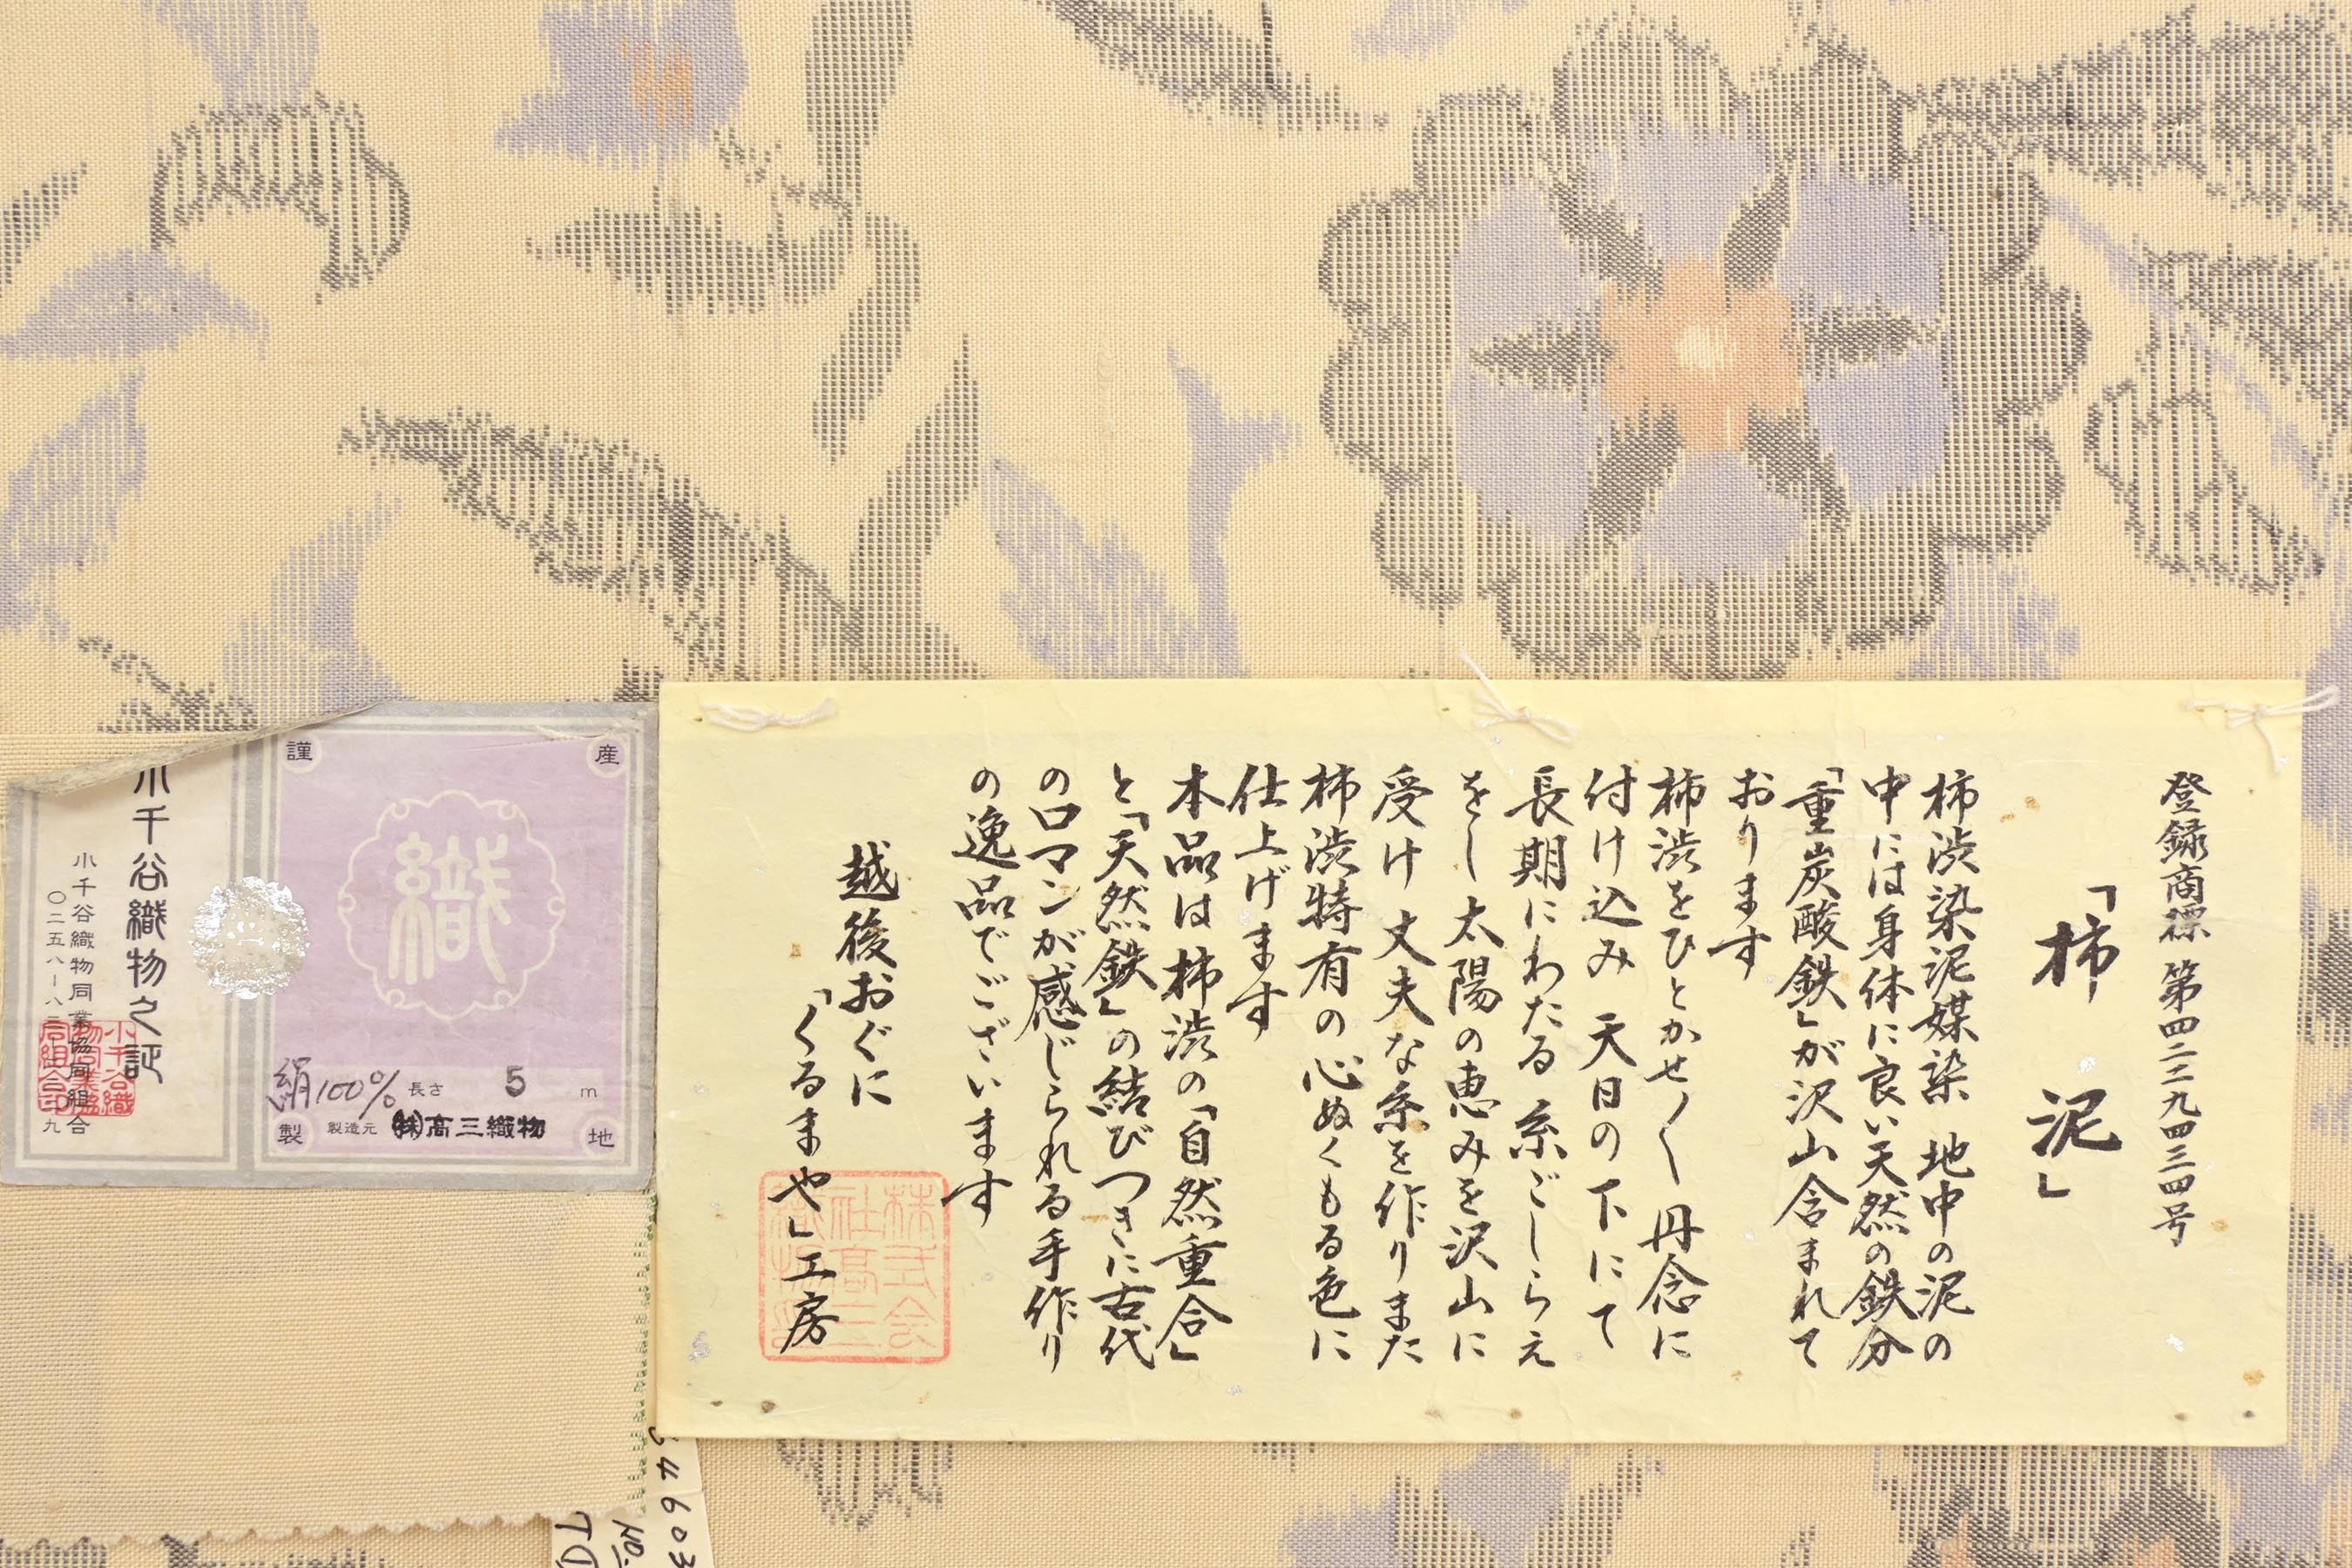 登録商標 第四二二九四三四号
「柿 泥」
柿渋染泥媒染 地中の泥の
中には身体に良い天然の鉄分
「重炭酸鉄」が沢山含まれて
おります
柿渋をひとかせ〱 丹念に
付け込み 天日の下にて
長期にわたる 糸ごしらえ
をし 太陽の恵みを沢山に
受け 丈夫な糸を作りまた
柿渋特有の心ぬくもる色に
仕上げます
本品は柿渋の「自然重合」
と「天然鉄」の結びつきに古代
のロマンが感じられる手作り
の逸品でございます
越後おぐに
「くるまや」工房
株式会
社高三
織物
謹
産
織
絹100% 長さ 5 m
製
製造元 ㈱高三織物
地
小千谷織物之証
小千谷織物同業協同組合
小千谷織
物同業協
同組合印
34603
No.